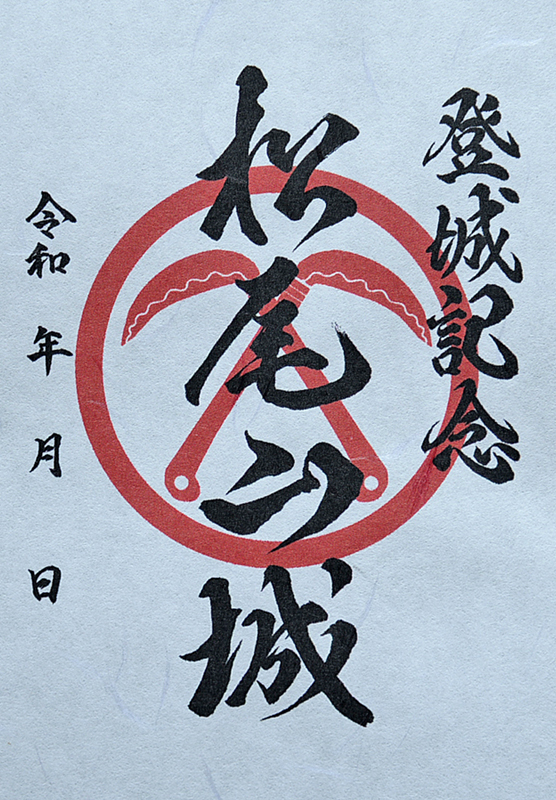 登城記念
松尾山城
令和 年 月 日